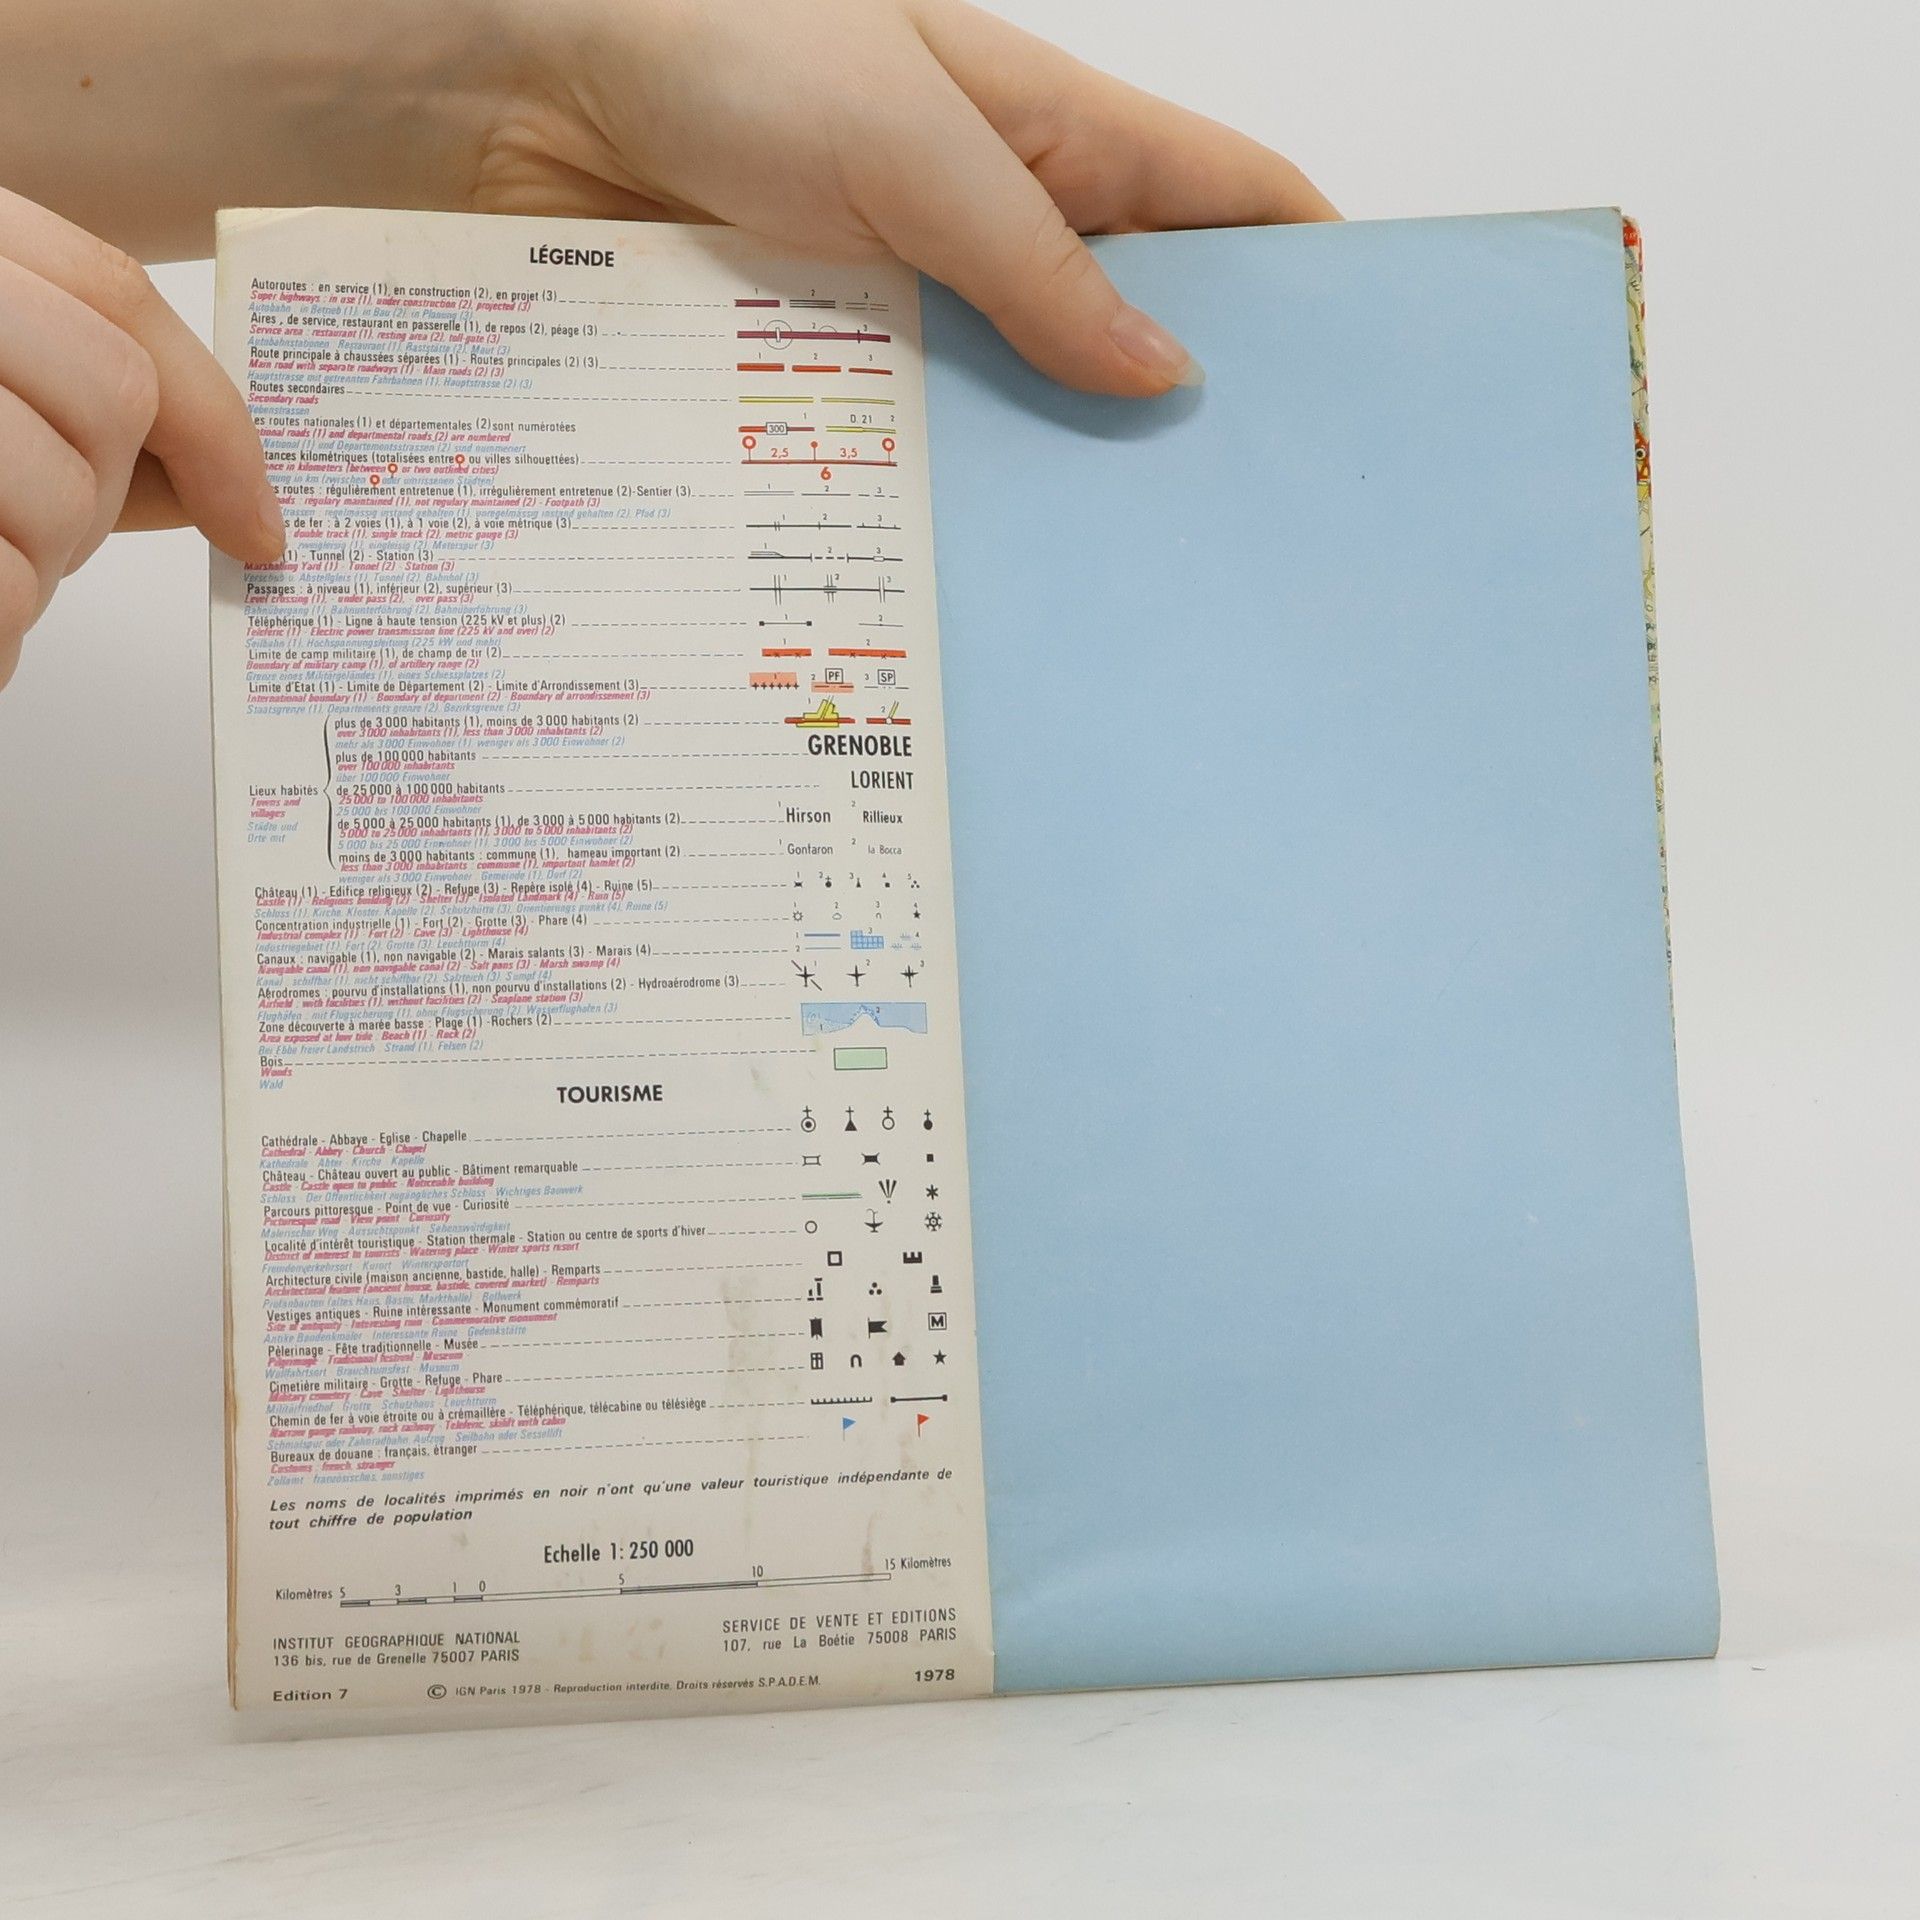 LÉGENDE
Autoroutes : en service (1), en construction (2), en projet (3)
Super highways : in use (1), under construction (2), projected (3)
Autobahn : in Betrieb (1), in Bau (2), in Planung (3)
1 2 3
Aires, de service, restaurant en passerelle (1), de repos (2), péage (3)
Service area : restaurant (1), resting area (2), toll-gate (3)
Autobahnstationen : Restaurant (1), Raststätte (2), Maut (3)
1 2 3
Route principale à chaussées séparées (1) - Routes principales (2) (3)
Main road with separate roadways (1) - Main roads (2) (3)
Hauptstrasse mit getrennten Fahrbahnen (1), Hauptstrasse (2) (3)
1 2 3
Routes secondaires
Secondary roads
Nebenstrassen
es routes nationales (1) et départementales (2) sont numérotées
tional roads (1) and departmental roads (2) are numbered
National (1) und Departementsstrassen (2) sind nummeriert
300 1 D. 21 2
tances kilométriques (totalisées entre ou villes silhouettées)
nce in kilometers (between or two outlined cities)
rnung in km (zwischen oder umrissenen Städten)
2,5 3,5
6
s routes : régulièrement entretenue (1), irrégulièrement entretenue (2)-Sentier (3)
ads : regulary maintained (1), not regulary maintained (2) - Footpath (3)
trassen : regelmässig instand gehalten (1), unregelmässig instand gehalten (2), Pfad (3)
1 2 3
s de fer : à 2 voies (1), à 1 voie (2), à voie métrique (3)
: double track (1), single track (2), metric gauge (3)
zweigleisig (1), eingleisig (2), Meterspur (3)
1 2 3
(1) - Tunnel (2) - Station (3)
Marshalling Yard (1) - Tunnel (2) - Station (3)
Verschub u. Abstellgleis (1), Tunnel (2), Bahnhof (3)
1 2 3
Passages : à niveau (1), inférieur (2), supérieur (3)
Level crossing (1), - under pass (2), - over pass (3)
Bahnübergang (1), Bahnunterführung (2), Bahnüberführung (3)
1 2 3
Téléphérique (1) - Ligne à haute tension (225 kV et plus) (2)
Teleferic (1) - Electric power transmission line (225 kV and over) (2)
Seilbahn (1), Hochspannungsleitung (225 kW und mehr)
1 2
Limite de camp militaire (1), de champ de tir (2)
Boundary of military camp (1), of artillery range (2)
Grenze eines Militärgeländes (1), eines Schiessplatzes (2)
1 2
Limite d'Etat (1) - Limite de Département (2) - Limite d'Arrondissement (3)
International boundary (1) - Boundary of department (2) - Boundary of arrondissement (3)
Staatsgrenze (1), Departements grenze (2), Bezirksgrenze (3)
1 2 PF 3 SP
plus de 3 000 habitants (1), moins de 3 000 habitants (2)
over 3 000 inhabitants (1), less than 3 000 inhabitants (2)
mehr als 3 000 Einwohner (1), weniger als 3 000 Einwohner (2)
1 2
plus de 100 000 habitants
over 100 000 inhabitants
über 100 000 Einwohner
GRENOBLE
Lieux habités
Towns and
villages
Städte und
Orte mit
de 25 000 à 100 000 habitants
25 000 to 100 000 inhabitants
25 000 bis 100 000 Einwohner
LORIENT
de 5 000 à 25 000 habitants (1), de 3 000 à 5 000 habitants (2)
5 000 to 25 000 inhabitants (1), 3 000 to 5 000 inhabitants (2)
5 000 bis 25 000 Einwohner (1), 3 000 bis 5 000 Einwohner (2)
1 Hirson 2 Rillieux
moins de 3 000 habitants : commune (1), hameau important (2)
less than 3 000 inhabitants : commune (1), important hamlet (2)
weniger als 3 000 Einwohner : Gemeinde (1), Dorf (2)
1 Gonfaron 2 la Bocca
Château (1) - Edifice religieux (2) - Refuge (3) - Repère isolé (4) - Ruine (5)
Castle (1) - Religious building (2) - Shelter (3) - Isolated Landmark (4) - Ruin (5)
Schloss (1), Kirche, Kloster, Kapelle (2), Schutzhütte (3), Orientierungs punkt (4), Ruine (5)
1 2 3 4 5
Concentration industrielle (1) - Fort (2) - Grotte (3) - Phare (4)
Industrial complex (1) - Fort (2) - Cave (3) - Lighthouse (4)
Industriegebiet (1), Fort (2), Grotte (3), Leuchtturm (4)
1 2 3 4
Canaux : navigable (1), non navigable (2) - Marais salants (3) - Marais (4)
Navigable canal (1), non navigable canal (2) - Salt pans (3) - Marsh swamp (4)
Kanal : schiffbar (1), nicht schiffbar (2), Salzteich (3), Sumpf (4)
1 2 3 4
Aérodromes : pourvu d'installations (1), non pourvu d'installations (2) - Hydroaérodrome (3)
Airfield : with facilities (1), without facilities (2) - Seaplane station (3)
Flughäfen : mit Flugsicherung (1), ohne Flugsicherung (2), Wasserflughafen (3)
1 2 3
Zone découverte à marée basse : Plage (1) - Rochers (2)
Area exposed at low tide : Beach (1) - Rock (2)
Bei Ebbe freier Landstrich : Strand (1), Felsen (2)
1 2
Bois
Woods
Wald
TOURISME
Cathédrale - Abbaye - Eglise - Chapelle
Cathedral - Abbey - Church - Chapel
Kathedrale - Abtei - Kirche - Kapelle
Château - Château ouvert au public - Bâtiment remarquable
Castle - Castle open to public - Noticeable building
Schloss - Der Öffentlichkeit zugängliches Schloss - Wichtiges Bauwerk
Parcours pittoresque - Point de vue - Curiosité
Picturesque road - View point - Curiosity
Malerischer Weg - Aussichtspunkt - Sehenswürdigkeit
Localité d'intérêt touristique - Station thermale - Station ou centre de sports d'hiver
District of interest to tourists - Watering place - Winter sports resort
Fremdenverkehrsort - Kurort - Wintersportort
Architecture civile (maison ancienne, bastide, halle) - Remparts
Architectural feature (ancient house, bastide, covered market) - Remparts
Profanbauten (altes Haus, Bastei, Markthalle) - Bollwerk
Vestiges antiques - Ruine intéressante - Monument commémoratif
Site of antiquity - Interesting ruin - Commemorative monument
Antike Baudenkmäler - Interessante Ruine - Gedenkstätte
Pèlerinage - Fête traditionnelle - Musée
Pilgrimage - Traditional festival - Museum
Wallfahrtsort - Brauchtumsfest - Museum
M
Cimetière militaire - Grotte - Refuge - Phare
Military cemetery - Cave - Shelter - Lighthouse
Militärfriedhof - Grotte - Schutzhaus - Leuchtturm
Chemin de fer à voie étroite ou à crémaillère - Téléphérique, télécabine ou télésiège
Narrow gauge railway, rack railway - Teleferic, skilift with cabin
Schmalspur oder Zahnradbahn, Aufzug - Seilbahn oder Sessellift
Bureaux de douane : français, étranger
Customs : french, stranger
Zollamt : französisches, sonstiges
Les noms de localités imprimés en noir n'ont qu'une valeur touristique indépendante de
tout chiffre de population
Echelle 1: 250 000
Kilomètres 5 3 1 0 5 10 15 Kilomètres
INSTITUT GEOGRAPHIQUE NATIONAL
136 bis, rue de Grenelle 75007 PARIS
SERVICE DE VENTE ET EDITIONS
107, rue La Boétie 75008 PARIS
Edition 7
© IGN Paris 1978 - Reproduction interdite. Droits réservés S.P.A.D.E.M.
1978